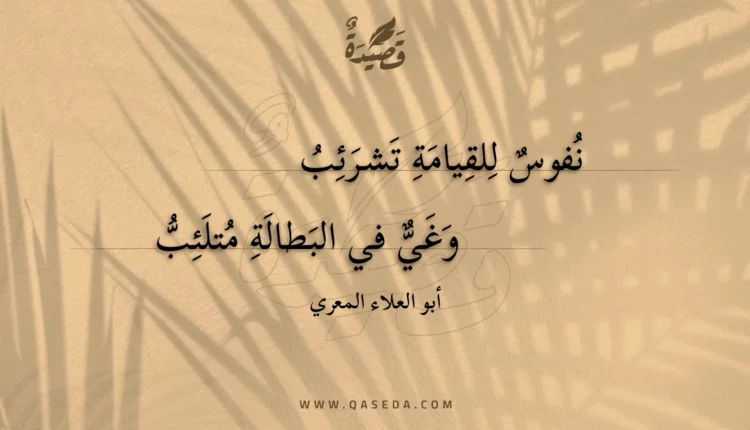 قَصِيدَةٌ
نُفوسٌ لِلقِيامَةِ تَشرَئِبُ
وَغَيٌّ في البَطالَةِ مُتلَئِبُّ
أبو العلاء المعري
WWW.QASEDA.COM